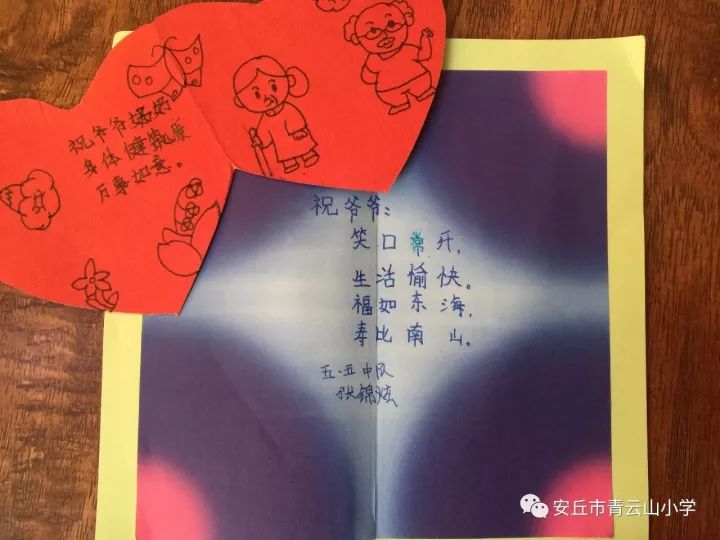 祝爷爷奶奶
身体健康
万事如意。
祝爷爷:
笑口常开,
生活愉快。
福如东海,
寿比南山。
五·五中队
张锦炫
安丘市青云山小学